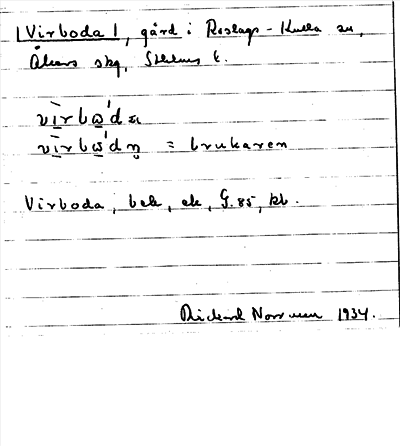 Virboda, gård i Roslags-Kulla sn,
Åkers skg, Sthlms l.
vìrbωdα
vìrbωdn̥ = brukaren
Virboda, bek, ek, G.85, kb.
Rickard Norrman 1934.